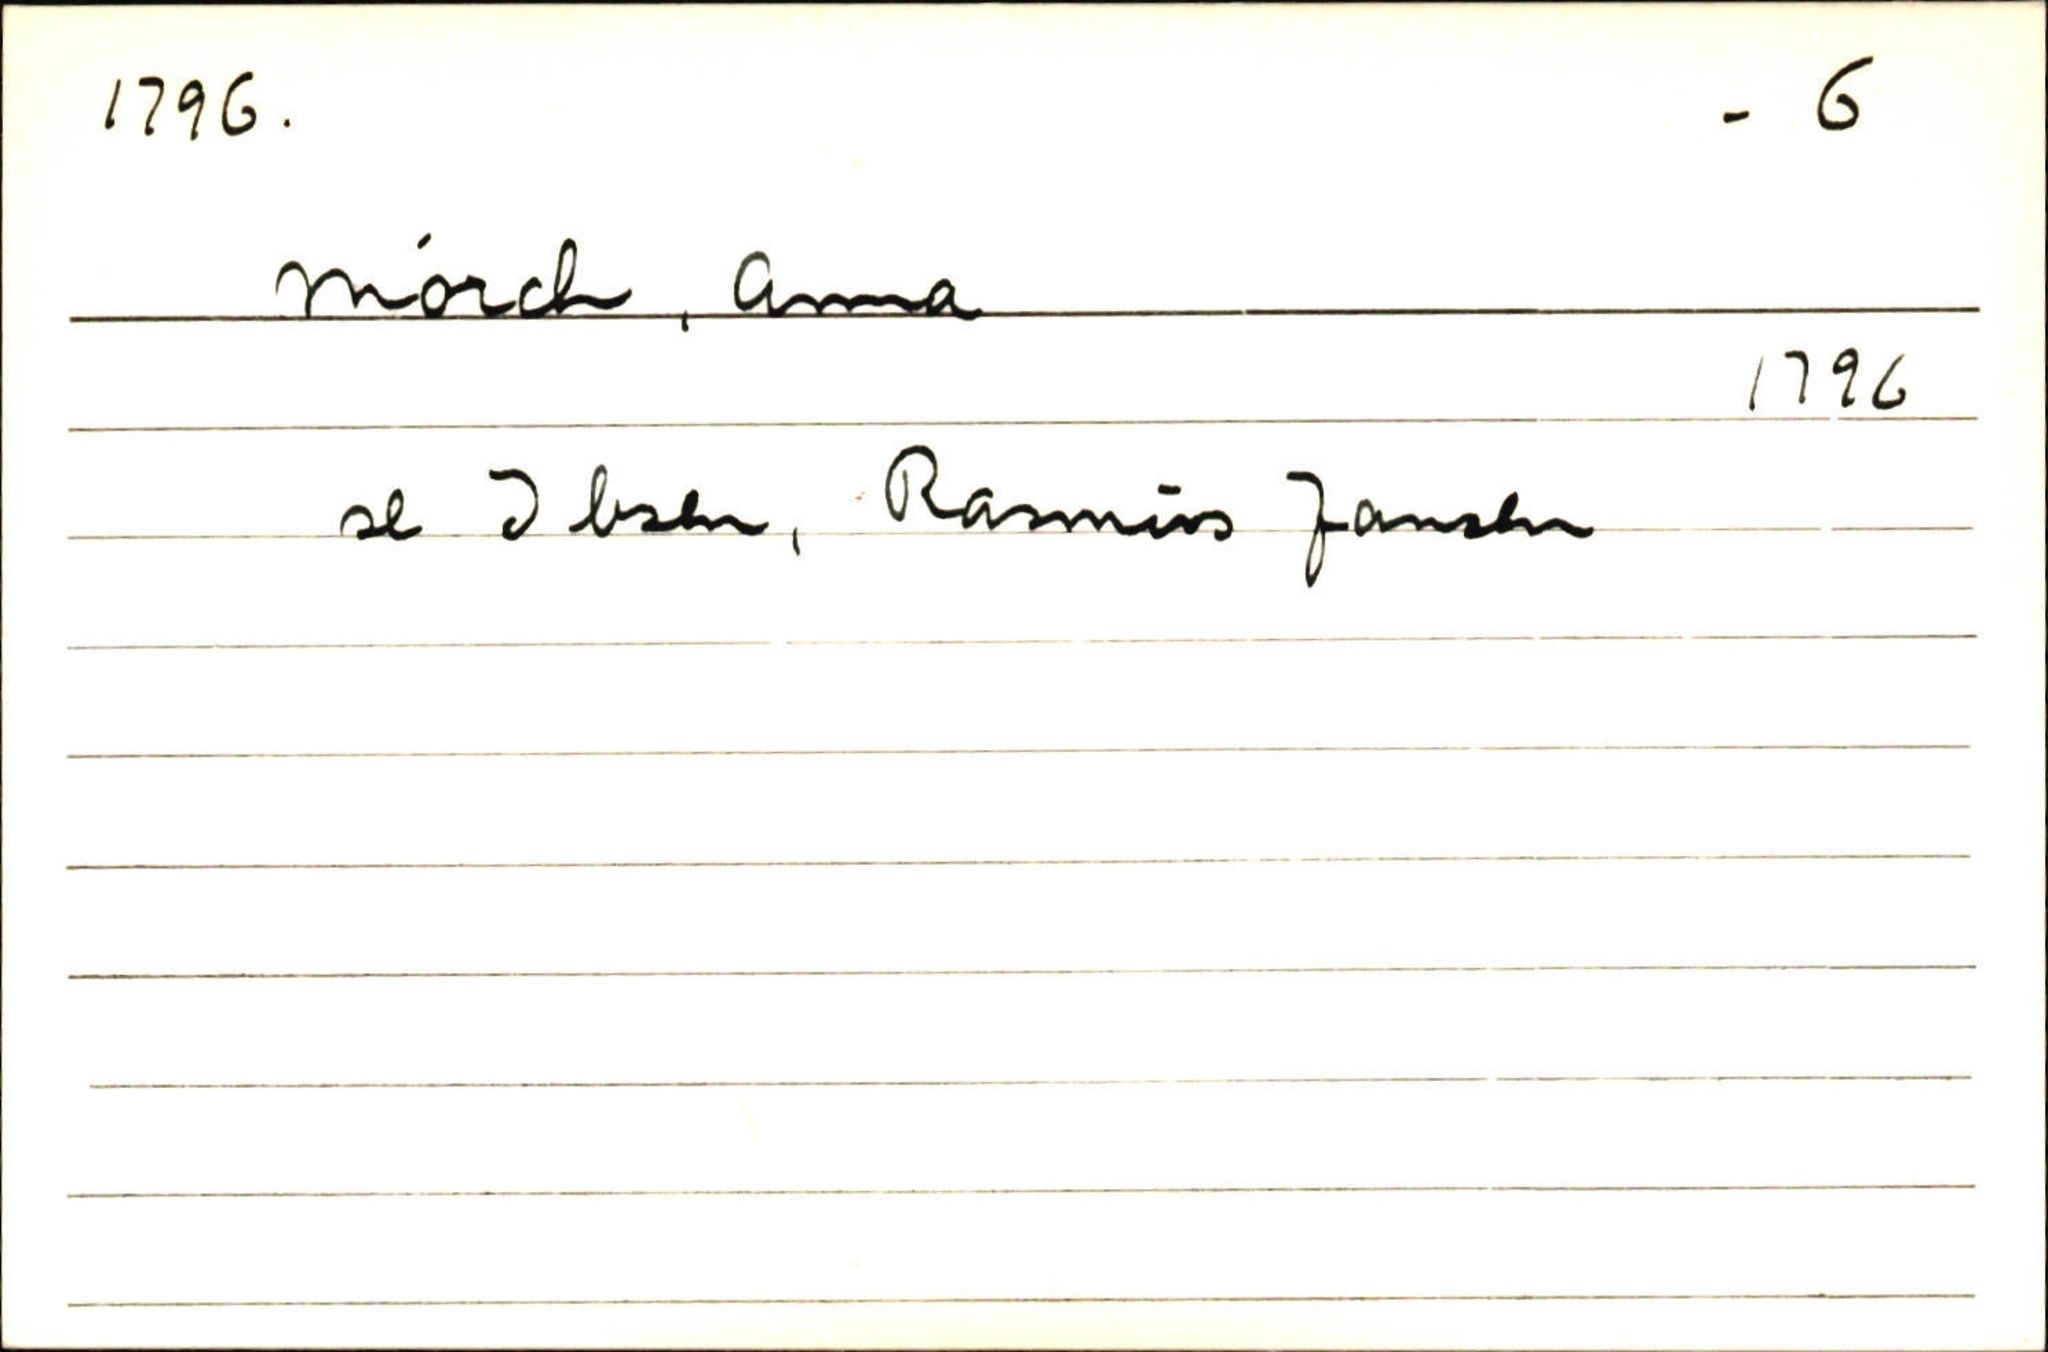 1796. - 6
Mörch, Anna
1796
se Ibsen, Rasmus Jansen